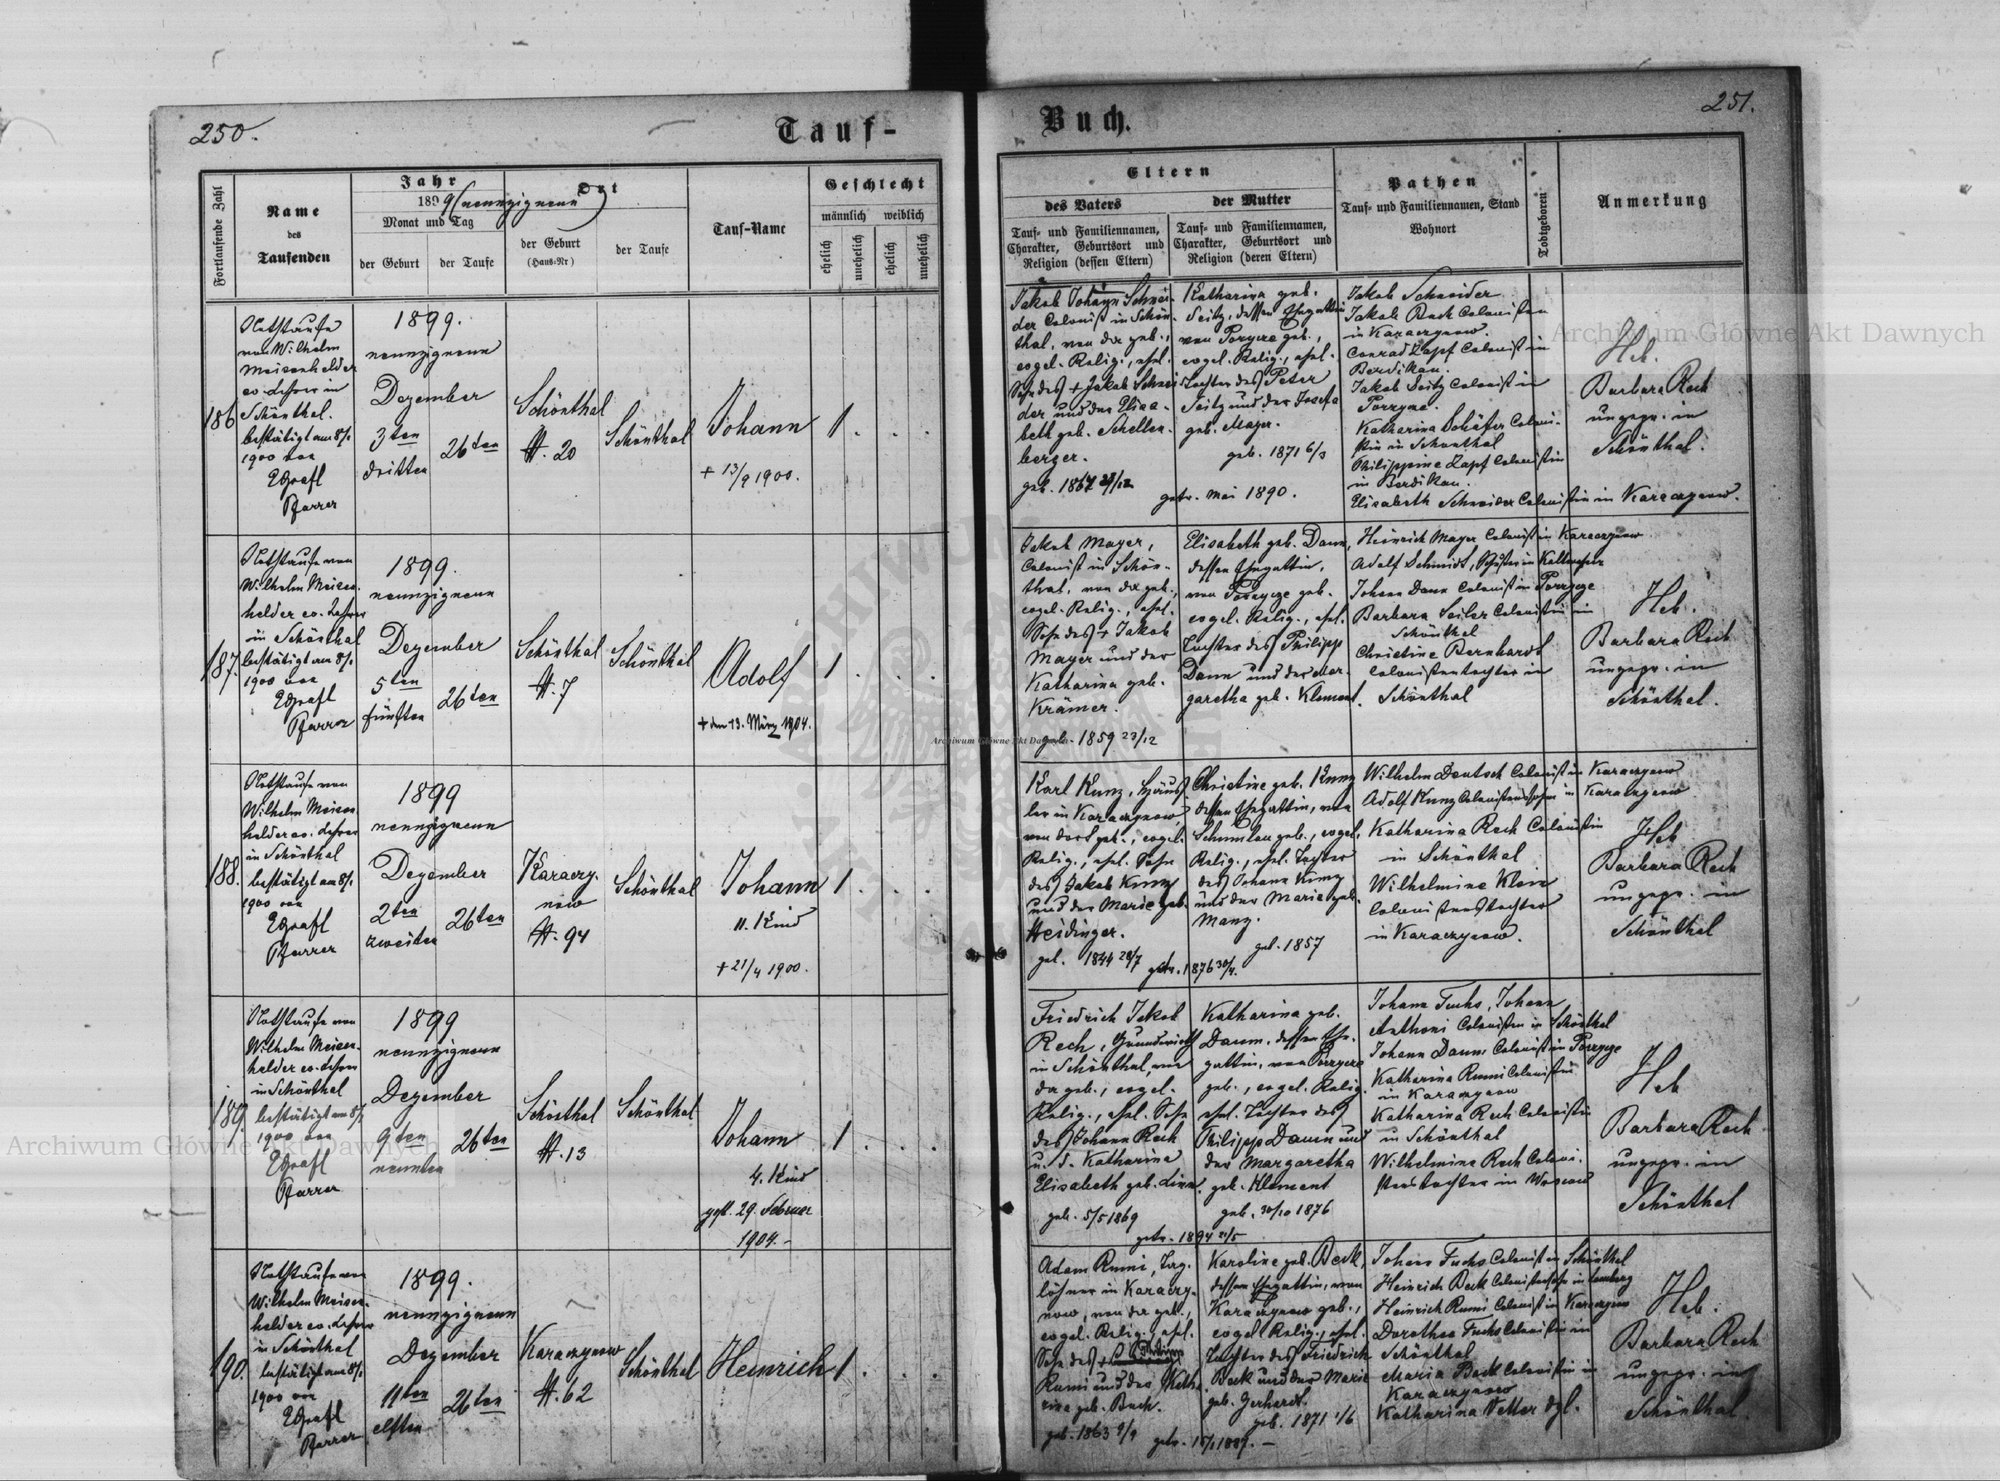 250.
Tauf-
Buch.
251.
Fortlaufende Zahl
Name
des
Taufenden
Jahr
1899 (neunzignenn)
Monat und Tag
der Geburt
der Taufe
Ort
der Geburt
(Haus-Nr)
der Taufe
Tauf-Name
Geschlecht
männlich
weiblich
ehelich
unehelich
ehelich
unehelich
Eltern
des Vaters
Tauf- und Familiennamen,
Charakter, Geburtsort und
Religion (dessen Eltern)
der Mutter
Tauf- und Familiennamen,
Charakter, Geburtsort und
Religion (deren Eltern)
Pathen
Tauf- und Familiennamen, Stand
Wohnort
Todtgeboren
Anmerkung
186
Nothtaufe
von Wilhelm
Meisenhelder
ev. Lehrer in
Schönthal.
bestätigt am 8/1
1900 von
Pfarrer
1899.
neunzigneun
Dezember
3ten
dritten
26ten
Schönthal
#. 20
Schönthal
Johann
+ 13/9 1900.
1
Jakob Johann Schnei-
der Colonist in Schön-
thal, von da geb.,
evgel. Relig., ehel.
Sohn des + Jakob Schnei-
der und der Elisa-
beth geb. Schellen-
berger.
geb. 1867
Katharina geb.
Seitz, dessen Ehegattin
von Porzyce geb.,
evgel. Relig., ehel.
Tochter des Peter
Seitz und der Josefa
geb. Mayer.
geb. 1871 6/3
getr. Mai 1890.
Jakob Schneider
Jakob Rech Colonisten
in Karaczynow.
Conrad Zapf Colonist in
Berdikau.
Jakob Seitz Colonist in
Porzyce.
Katharina Schäfer Coloni-
stin in Schönthal
Philippine Zapf Colonistin
in Berdikau.
Elisabeth Schneider Colonistin in Karaczynow.
Heb.
Barbara Rech
ungepr. in
Schönthal.
187.
Nothtaufe von
Wilhelm Meisen-
helder ev. Lehrer
in Schönthal
bestätigt am 8/1
1900 von
Pfarrer
1899.
neunzigneun
Dezember
5ten
fünften
26ten
Schönthal
#. 7
Schönthal
Adolf
+ den 13. März 1904.
1
Jakob Mayer,
Colonist in Schön-
thal, von da geb.,
evgel. Relig., ehel.
Sohn des + Jakob
Mayer und der
Katharina geb.
Krämer.
geb. 1859 23/12
Elisabeth geb. Daum,
dessen Ehegattin,
von Porzyce geb.
evgel. Relig., ehel.
Tochter des Philipp
Daum und der Mar-
garetha geb. Klement.
Heinrich Mayer Colonist in Karaczynow
Adolf Schmidt,
Johann Daum Colonist in Porzyce
Barbara Seiler Colonistin in
Schönthal
Christine Bernhardt
Colonistentochter in
Schönthal
Heb.
Barbara Rech
ungepr. in
Schönthal.
188.
Nothtaufe von
Wilhelm Meisen-
helder ev. Lehrer
in Schönthal
bestätigt am 8/1
1900 von
Pfarrer
1899
neunzigneun
Dezember
2ten
zweiten
26ten
Karaczy-
now
#. 94
Schönthal
Johann
11. Kind
+ 21/4 1900.
1
Karl Kunz, Häus-
ler in Karaczynow,
von dort geb., evgel.
Relig., ehel. Sohn
des Jakob Kunz
und der Marie geb.
Heidinger.
geb. 1844 28/7
Christine geb. Kunz
dessen Ehegattin, von
Schumlau geb., evgel.
Relig., ehel. Tochter
des Johann Kunz
und der Maria geb.
Manz.
geb. 1857
getr. 1876 30/4.
Wilhelm Deutsch Colonist in Karaczynow
Adolf Kunz Colonistensohn in Karaczynow
Katharina Rech Colonistin
in Schönthal
Wilhelmine Klein
Colonistentochter
in Karaczynow.
Heb
Barbara Rech
ungepr. in
Schönthal
189.
Nothtaufe von
Wilhelm Meisen-
helder ev. Lehrer
in Schönthal
bestätigt am 8/1
1900 von
Pfarrer
1899
neunzigneun
Dezember
9ten
neunten
26ten
Schönthal
#. 13
Schönthal
Johann
4. Kind
gest. 29. Februar
1904.-
1
Friedrich Jakob
Rech, Grundwirth
in Schönthal, von
da geb., evgel.
Relig., ehel. Sohn
des Johann Rech
u. d. Katharina
Elisabeth geb. Linn.
geb. 5/5 1869
Katharina geb.
Daum, dessen Ehe-
gattin, von Porzyce
geb., evgel. Relig.
ehel. Tochter des
Philipp Daum und
der Margaretha
geb. Klement
geb. 30/10 1876
getr. 1894 21/5
Johann Fuchs, Johann
Anthoni Colonisten in Schönthal
Johann Daum Colonist in Porzyce
Katharina Rumi Colonistin
in Karaczynow
Katharina Rech Colonistin
in Schönthal
Wilhelmine Rech Coloni-
stentochter in
Heb
Barbara Rech
ungepr. in
Schönthal
190.
Nothtaufe von
Wilhelm Meisen-
helder ev. Lehrer
in Schönthal
bestätigt am 8/1
1900 von
Pfarrer
1899.
neunzigneun
Dezember
11ten
elften
26ten
Karaczynow
#. 62
Schönthal
Heinrich
1
Adam Rumi, Tag-
löhner in Karaczy-
now, von da geb.,
evgel. Relig., ehel.
Sohn des
Rumi und der Katha-
rina geb. Bach.
geb. 1863
Karoline geb. Beck,
dessen Ehegattin, von
Karaczynow geb.,
evgel. Relig., ehel.
Tochter des Friedrich
Beck und der Marie
geb. Gerhardt.
geb. 1871 1/6
Johann Fuchs Colonist in Schönthal
Heinrich Beck Colonistensohn in Lemberg
Heinrich Rumi Colonist in Karaczynow
Dorothea Fuchs Colonistin in
Schönthal
Maria Beck Colonistin in
Karaczynow
Katharina Vetter dgl.
Heb.
Barbara Rech
ungepr. in
Schönthal.
Archiwum Główne Akt Dawnych
Archiwum Główne Akt Dawnych
Archiwum Główne Akt Dawnych